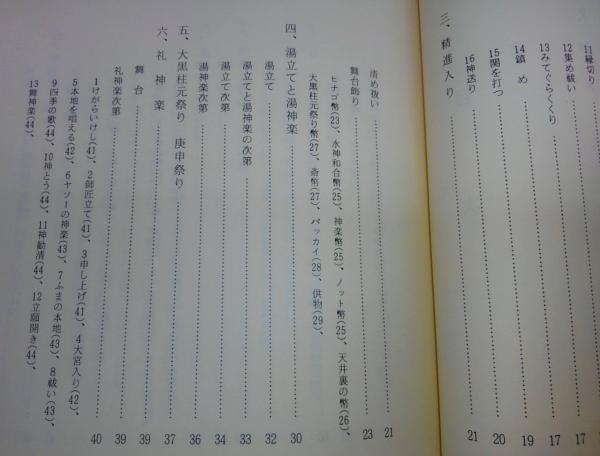 11縁切り……17
12集め祓い……17
13みてぐらくくり……17
14鎮め……19
15関を打つ……20
16神送り……21
三、精進入り
清め祓い……21
舞台飾り……23
ヒナゴ幣(23)、水神和合幣(25)、神楽幣(25)、ノット幣(25)、天井裏の幣(26)、
大黒柱元祭り幣(27)、斎幣(27)、バッカイ(28)、供物(29)、
四、湯立てと湯神楽……30
湯立て……32
湯立てと湯神楽の次第……33
湯立て次第……34
湯神楽次第……36
五、大黒柱元祭り 庚申祭り……37
六、礼神楽……39
舞台……39
礼神楽次第……40
1けがらいけし(41)、2師匠立て(41)、3申し上げ(41)、4大宮入り(42)、
5本地を唱える(42)、6ヤソーの神楽(43)、7ふまの本地(43)、8祓い(43)、
9四季の歌(44)、10神とう(44)、11神勧請(44)、12立願開き(44)、
13舞神楽(44)、